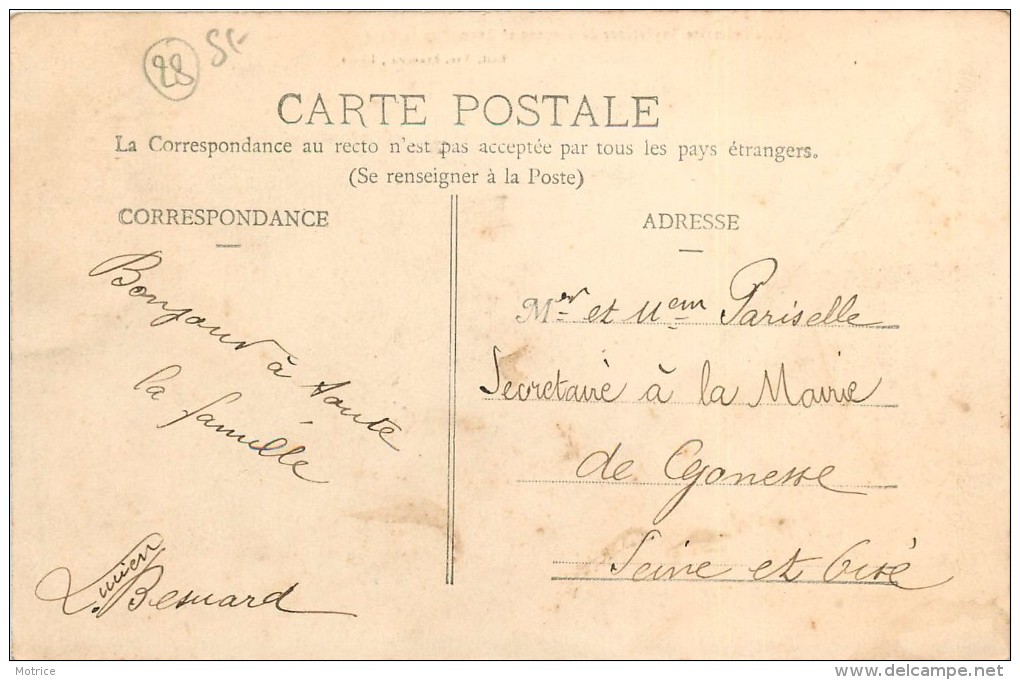 28
CARTE POSTALE
La Correspondance au recto n'est pas acceptée par tous les pays étrangers.
(Se renseigner à la Poste)
CORRESPONDANCE
Bonjour à toute
la famille
Lucien
Besnard
ADRESSE
Mer et Mem Pariselle
Secretaire à la Mairie
de Gonesse
Seine et Oise
Motrice
www.delcampe.net